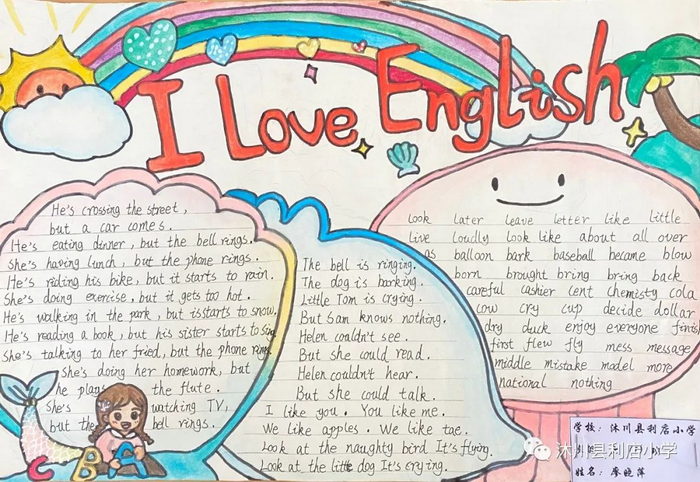 I Love English
He's crossing the street,
but a car comes.
He's eating dinner, but the bell rings.
She's having lunch, but the phone rings.
He's riding his bike, but it starts to rain.
She's doing exercise, but it gets too hot.
He's walking in the park, but isstarts to snow.
He's reading a book, but his sister starts to sing
She's talking to her fried, but the phone rings
She's doing her homework, but
he plays the flute.
She's watching TV,
but the bell rings.
C B A
The bell is ringing.
The dog is barking.
Little Tom is crying.
But Sam knows nothing.
Helen couldn't see.
But she could read.
Helen couldn't hear.
But she could talk.
I like you. You like me.
We like apples. We like tae.
Look at the naughty bird It's flying.
Look at the little dog It's crying.
look later leave letter like little
live loudly look like about all over
as balloon bark baseball became blow
born brought bring bring back
careful cashier cent chemisty cola
cow cry cup decide dollar
dry duck enjoy everyone finish
first flew fly mess message
middle mistake model more
national nothing
学校: 沐川县利店小学
姓名: 廖晓萍
沐川县利店小学